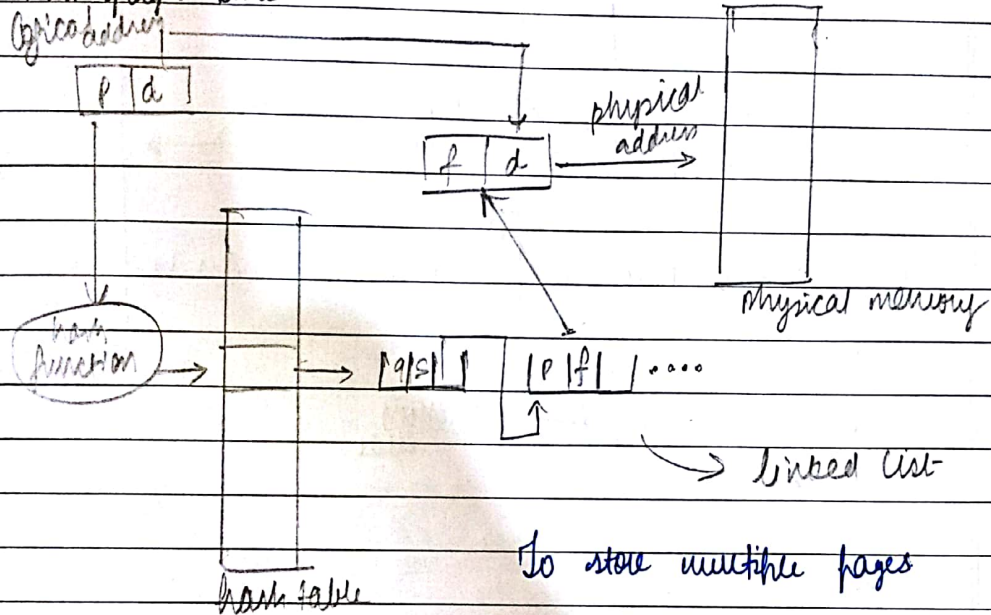 Logical address
p d
physical
address
f d
physical memory
hash
function
q s
p f ....
linked list
To store multiple pages
hash table